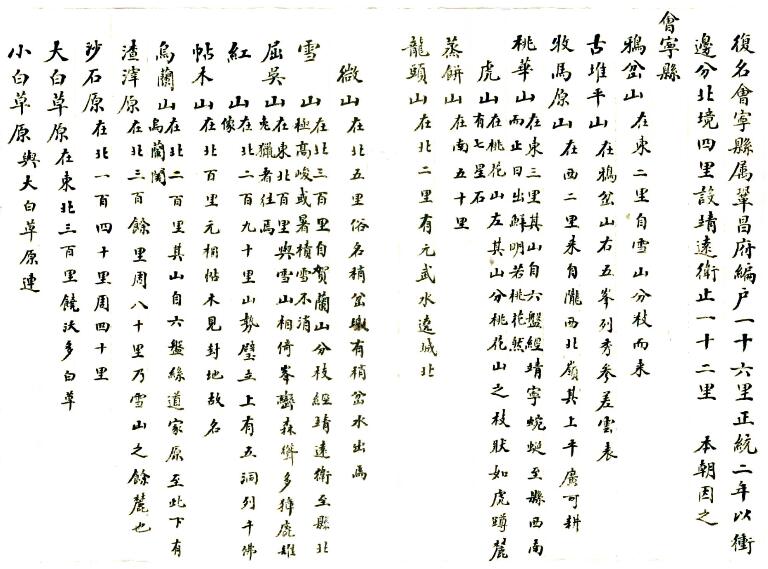 復名會寧縣属鞏昌府編户一十六里正統二年以衝
邊分北境四里設靖遠衛止一十二里 本朝因之
會寧縣
鴉岔山在東二里自雪山分枝而来
古堆平山在鴉岔山右五峯列秀参差雲表
牧馬原山在西二里来自隴西北嶺其上平廣可耕
桃華山在東三里其山自六盤經靖寧蜿蜒至縣西南
而止日出鮮明若桃花然
虎山在桃花山左其山分桃花山之枝状如虎蹲麓
有七星石
蒸餅山在南五十里
龍頭山在北二里有元武水遶城北
微山在北五里俗名稍岔有稍岔水出焉
雪山在北三百里自賀蘭山分枝經靖遠衛至縣北
極高峻或暑積雪不消
屈吳山在東北百里與雪山相倚峯巒森聳多獐鹿雉
老獵者往焉
紅山在北二百九十里山勢壁立上有五洞列千佛
像
帖木山在北百里元相帖木見封地故名
烏蘭山在北二百里其山自六盤絲道家原至此下有
烏蘭関
渣滓原在北三百餘里周八十里乃雪山之餘麓也
沙石原在北一百四十里周四十里
大白草原在東北三百里饒沃多白草
小白草原與大白草原連